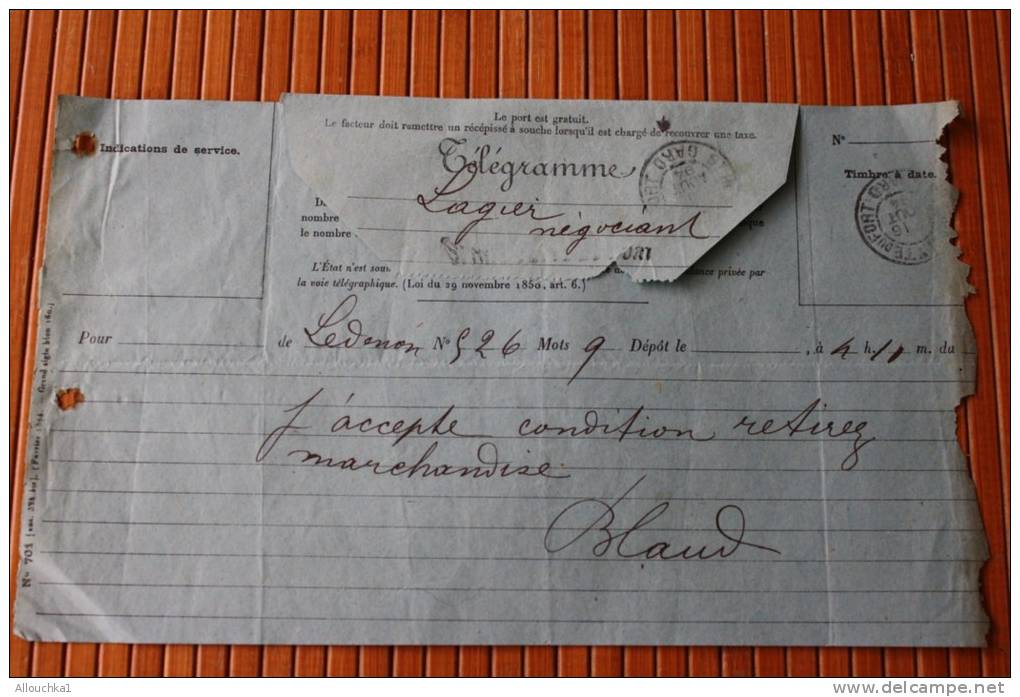 Le port est gratuit.
Le facteur doit remettre un récépissé à souche lorsqu'il est chargé de recouvrer une taxe.
Indications de service.
Télégramme
N°
Timbre à date.
Lagier
négociant
nombre
le nombre
L'État n'est soum
privée par
la voie télégraphique. (Loi du 29 novembre 1850, art. 6.)
Pour de Ledenon N° 526 Mots 9 Dépôt le , à 4 h/ m. du
J'accepte condition retirez
marchandise
Blaud
N° 701
GARD
AOUT
94
16
Allouchka1
delcampe.net